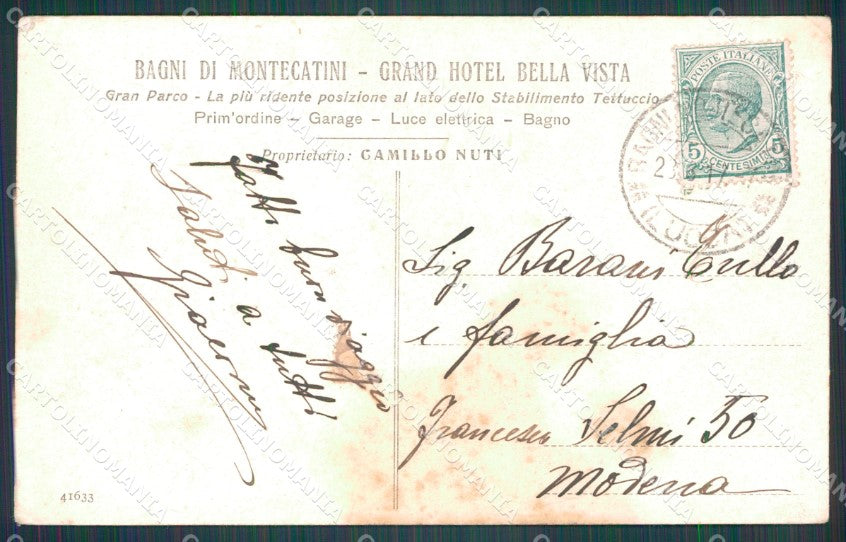 BAGNI DI MONTECATINI - GRAND HOTEL BELLA VISTA
Gran Parco - La più ridente posizione al lato dello Stabilimento Tettuccio
Prim'ordine - Garage - Luce elettrica - Bagno
Proprietario: CAMILLO NUTI
POSTE ITALIANE
5 CENTESIMI 5
BAGNI
Fatto buon viaggio
Saluti a tutti
Giacomo
Sig. Barani Tullo
e famiglia
Francesco Selmi 50
Modena
41633
CARTOLINOMANIA